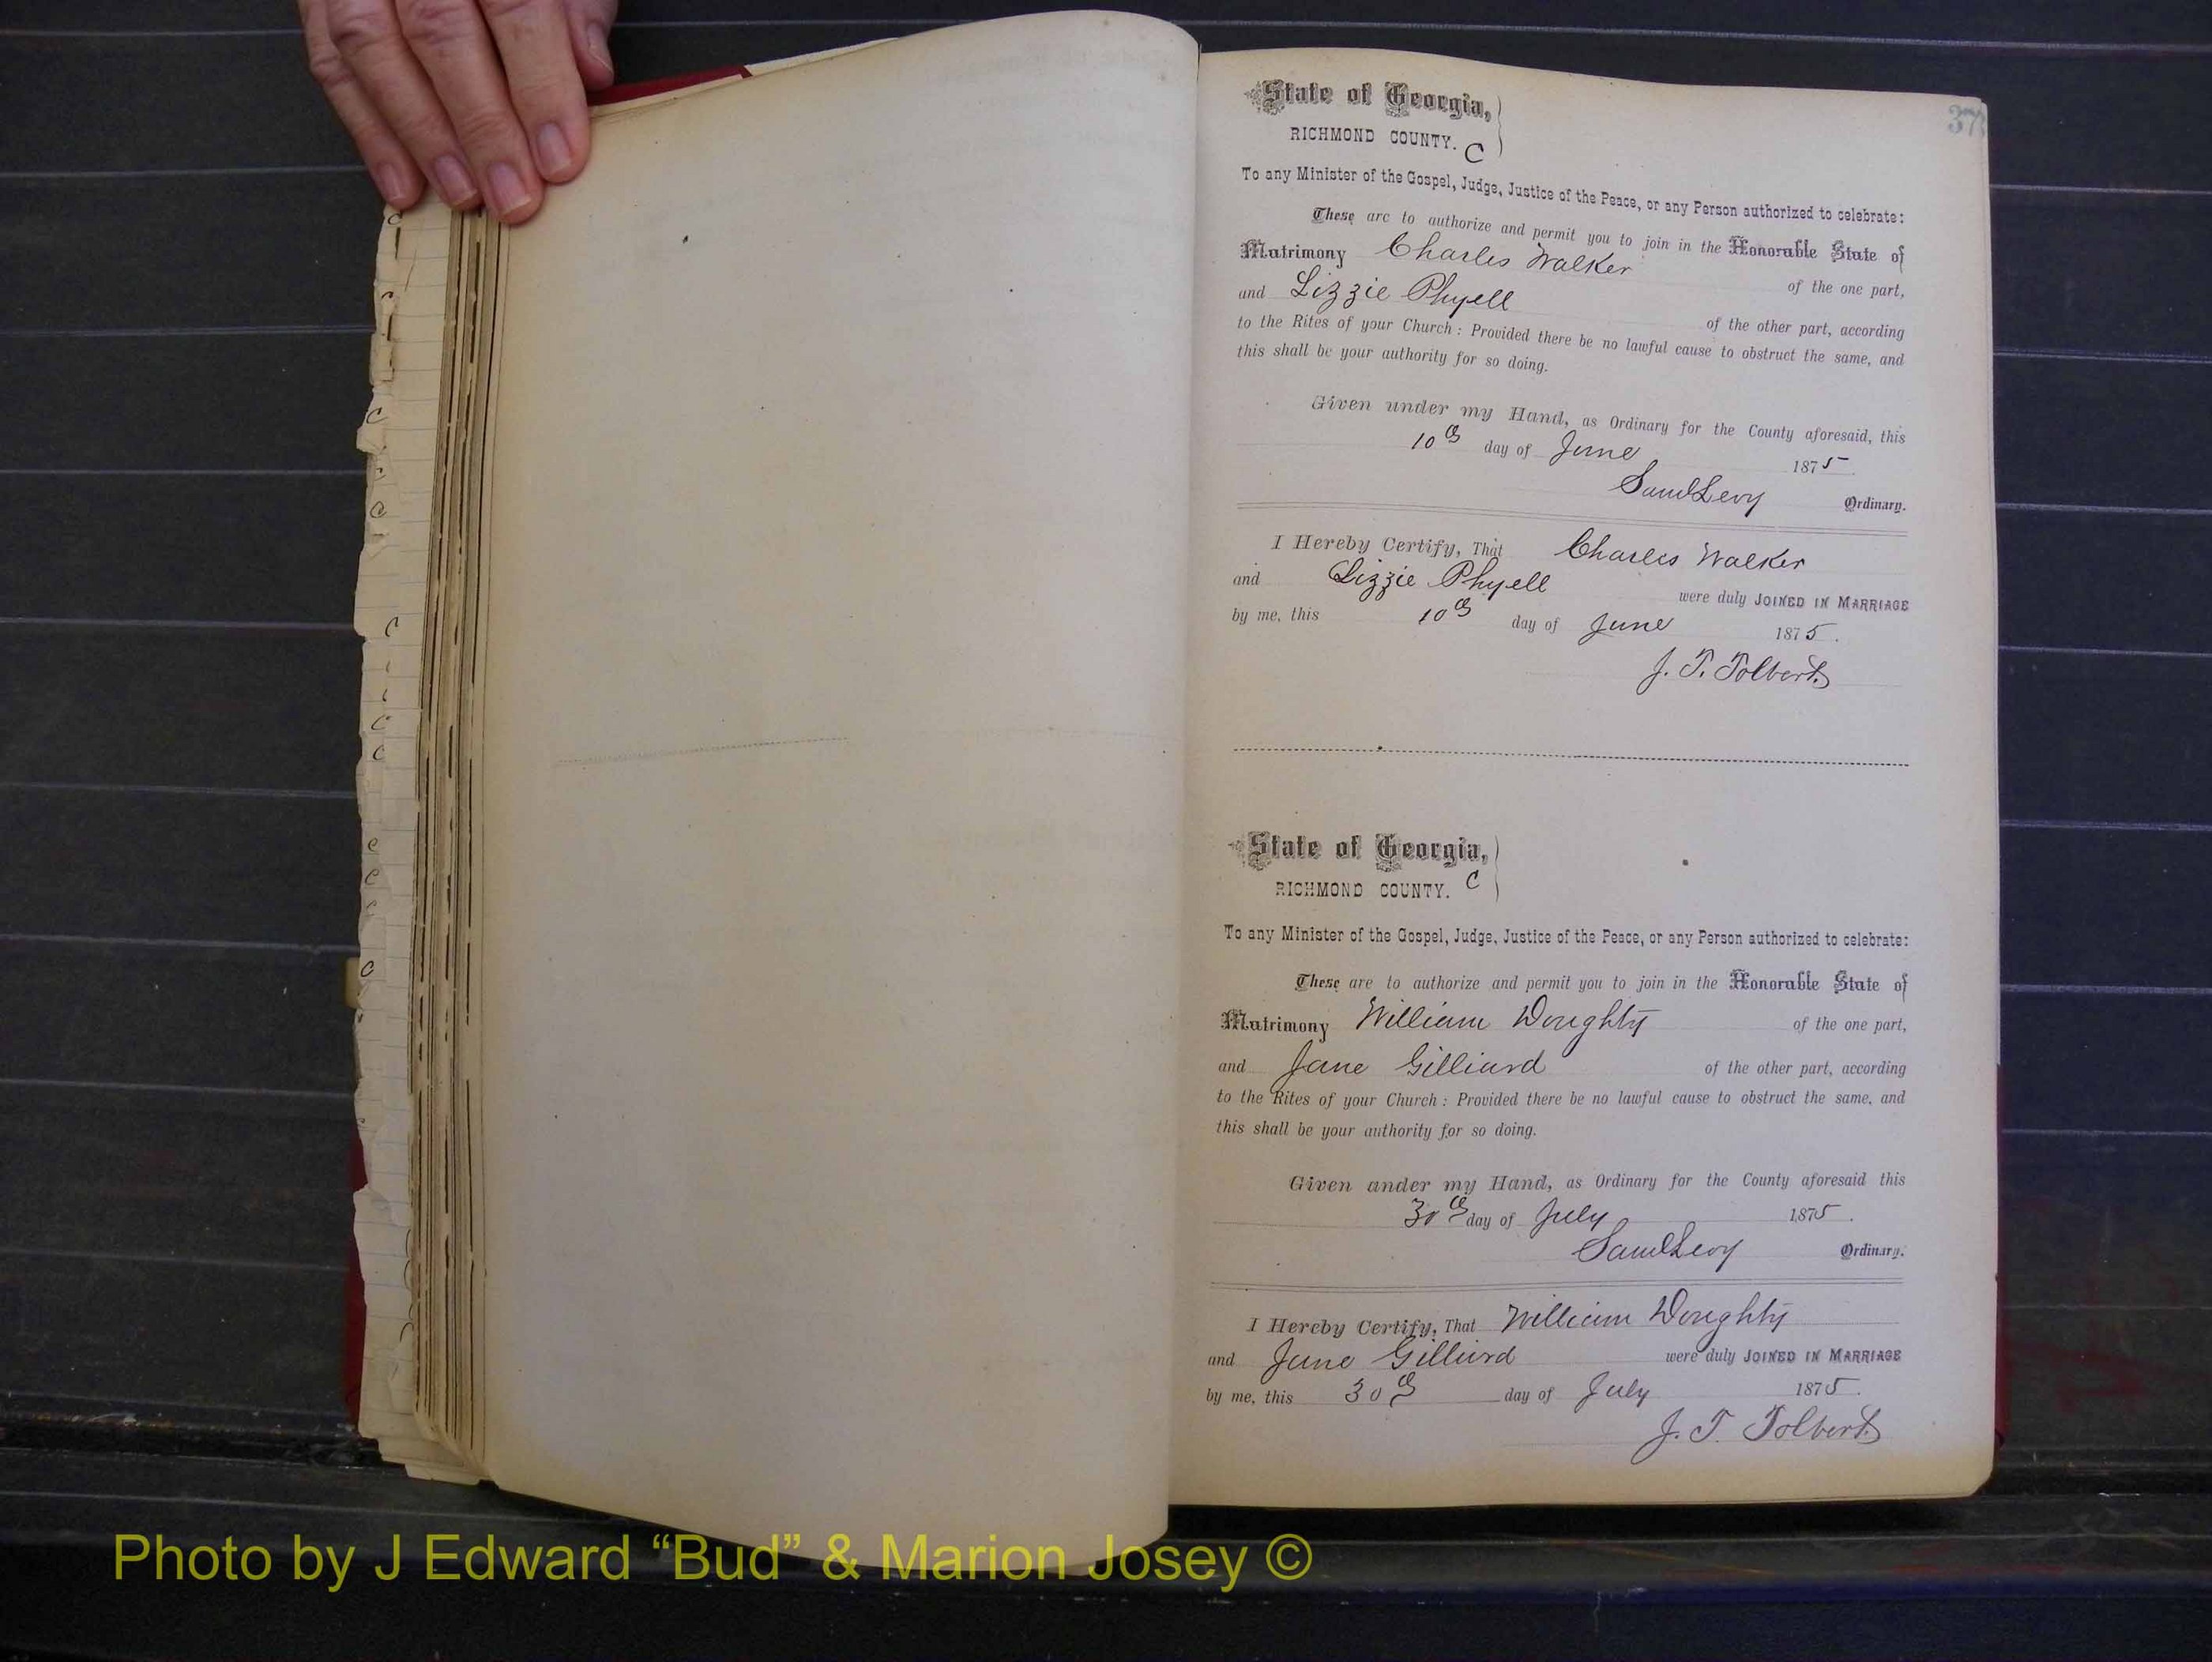 37
State of Georgia,
RICHMOND COUNTY. C
To any Minister of the Gospel, Judge, Justice of the Peace, or any Person authorized to celebrate:
These are to authorize and permit you to join in the Honorable State of
Matrimony Charles Walker of the one part,
and Lizzie Phyell of the other part, according
to the Rites of your Church: Provided there be no lawful cause to obstruct the same, and
this shall be your authority for so doing.
Given under my Hand, as Ordinary for the County aforesaid, this
10th day of June 1875.
Saml Levy Ordinary.
I Hereby Certify, That Charles Walker
and Lizzie Phyell were duly JOINED IN MARRIAGE
by me, this 10th day of June 1875.
J. T. Tolbert
State of Georgia,
RICHMOND COUNTY. C
To any Minister of the Gospel, Judge, Justice of the Peace, or any Person authorized to celebrate:
These are to authorize and permit you to join in the Honorable State of
Matrimony William Doughty of the one part,
and Jane Gilliard of the other part, according
to the Rites of your Church: Provided there be no lawful cause to obstruct the same, and
this shall be your authority for so doing.
Given under my Hand, as Ordinary for the County aforesaid this
30th day of July 1875.
Saml Levy Ordinary.
I Hereby Certify, That William Doughty
and Jane Gilliard were duly JOINED IN MARRIAGE
by me, this 30th day of July 1875.
J. T. Tolbert
Photo by J Edward “Bud” & Marion Josey ©